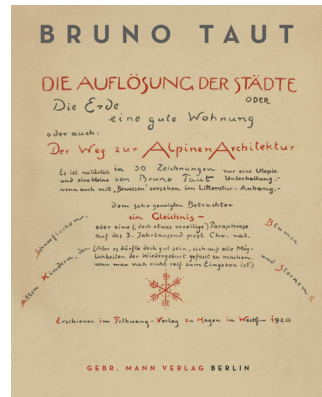 BRUNO TAUT
DIE AUFLÖSUNG DER STÄDTE
ODER
Die Erde
eine gute Wohnung
oder auch:
Der Weg zur Alpinen Architektur
Es ist natürlich in 30 Zeichnungen nur eine Utopie
und eine kleine von Bruno Taut Unterhaltung,-
wenn auch mit „Beweisen" versehen im Litteratur-Anhang,-
dem sehr geneigten Betrachter
ein Gleichnis –
oder eine (doch etwas voreilige) Paraphrase
auf das 3. Jahrtausend post Chr. nat.
(Aber es dürfte doch gut sein, sich auf alle Mög-
lichkeiten der Wiedergeburt gefasst zu machen,
wenn man noch nicht reif zum Eingehen ist)
Allen Kindern, den Schneeflocken,
Blumen und Sternen
Erschienen im Folkwang-Verlag zu Hagen in Westfw 1920
GEBR. MANN VERLAG BERLIN